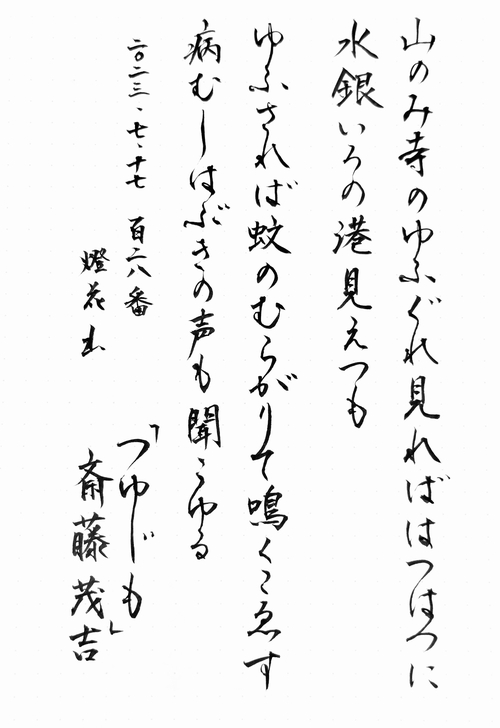 山のみ寺のゆふぐれ見ればはつはつに
水銀いろの港見えつも
ゆふされば蚊のむらがりて鳴くこゑす
病むしはぶきの声も聞こゆる
二〇二三、七、十七 百二八番
燈花出
「つゆじも」
斎藤茂吉